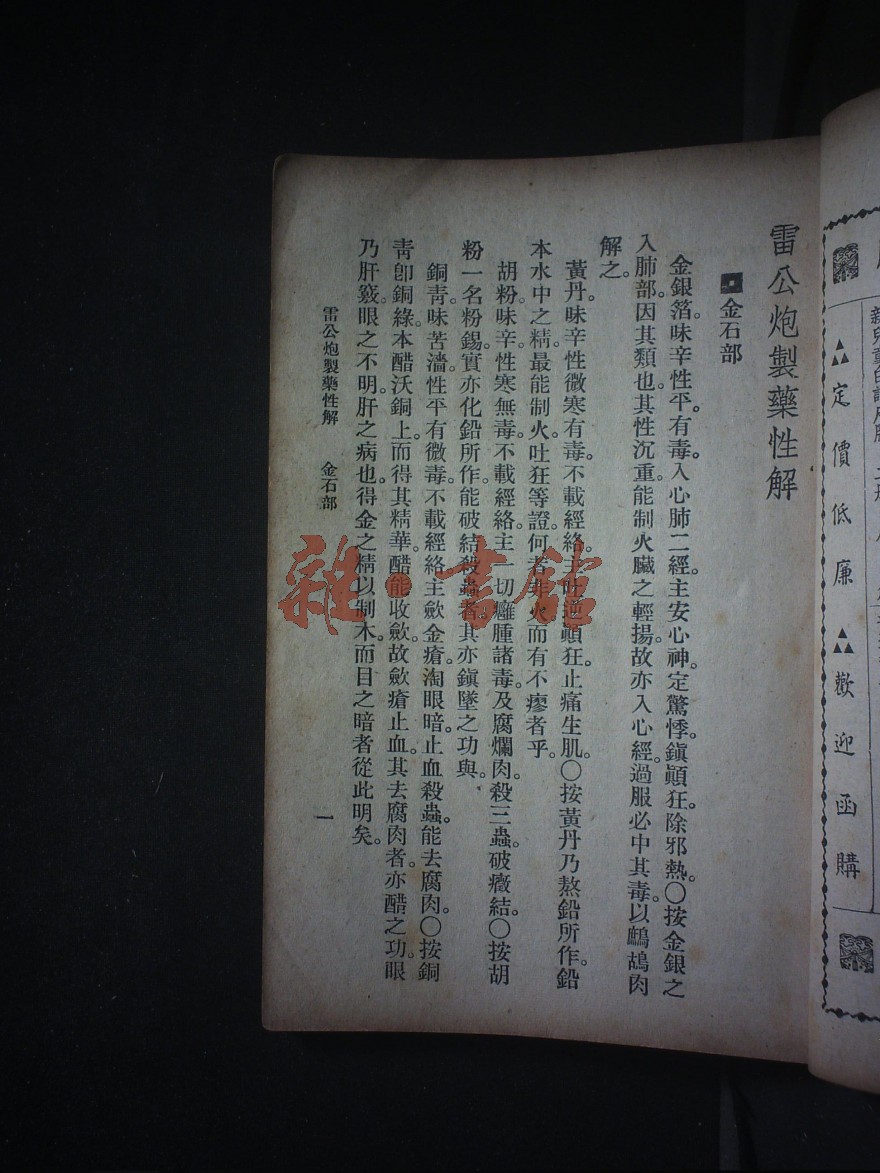 雷公炮製藥性解
金石部
金銀箔。味辛性平。有毒。入心肺二經。主安心神。定驚悸。鎭顚狂。除邪熱。〇按金銀之
入肺部。因其類也。其性沉重。能制火臟之輕揚。故亦入心經。過服必中其毒。以鷓鴣肉
解之。
黃丹。味辛性微寒有毒。不載經絡。主吐逆顚狂。止痛生肌。〇按黃丹乃熬鉛所作。鉛
本水中之精。最能制火。吐狂等證。何者非火。而有不瘳者乎。
胡粉。味辛性寒無毒。不載經絡。主一切癰腫諸毒。及腐爛肉。殺三蟲。破癥結。〇按胡
粉一名粉錫。實亦化鉛所作。能破結殺蟲者。其亦鎭墜之功與。
銅靑。味苦濇。性平有微毒。不載經絡。主歛金瘡。淘眼暗。止血殺蟲。能去腐肉。〇按銅
靑卽銅綠。本醋沃銅上。而得其精華。醋能收歛。故歛瘡止血。其去腐肉者。亦醋之功。眼
乃肝竅。眼之不明。肝之病也。得金之精以制木。而目之暗者從此明矣。
雷公炮製藥性解 金石部 一
定價低廉 歡迎函購
雜·書館